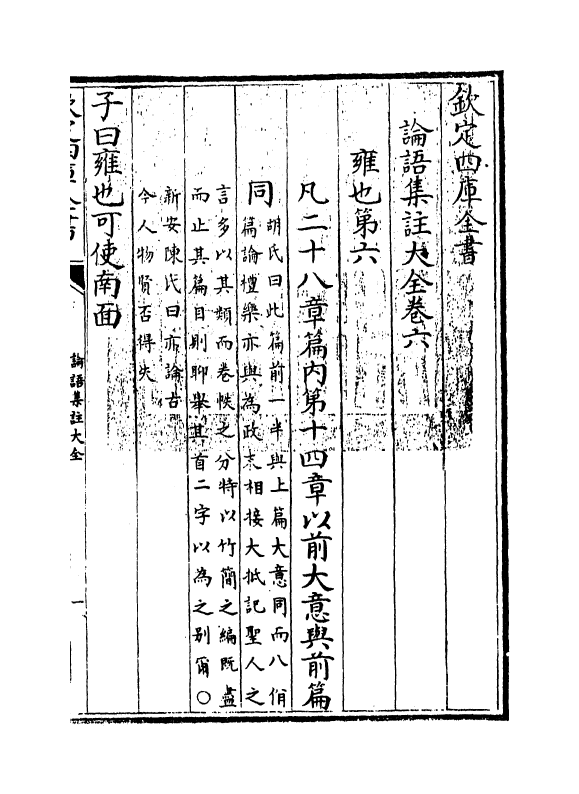 欽定四庫全書
論語集註大全卷六
雍也第六
凡二十八章篇内第十四章以前大意與前篇
同
胡氏曰此篇前一半與上篇大意同而八佾
篇論禮樂亦與為政末相接大抵記聖人之
言多以其類而卷帙之分特以竹簡之編既盡
而止其篇目則聊舉其首二字以為之别爾○
新安陳氏曰亦論古
今人物賢否得失
子曰雍也可使南面
論語集註大全
一